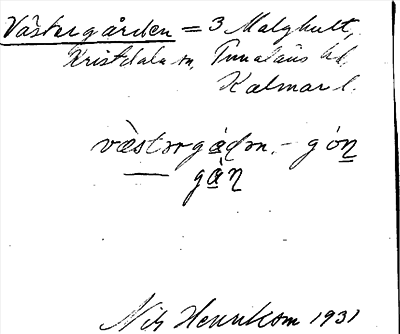 Västergården = 3 Malghult,
Kristdala sn, Tunaläns hd,
Kalmar l.
vɛ̀stərgɑ̲́ɖən, – gón̲
— gɑ̲̀ɳ
Nils Henrikson 1931